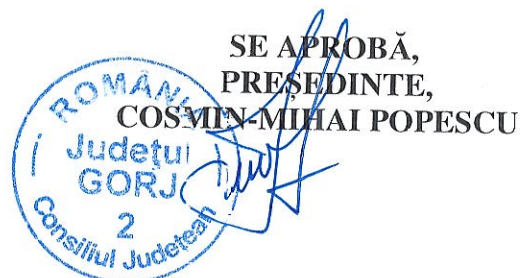 SE APROBĂ,
PREȘEDINTE,
COSMIN-MIHAI POPESCU
ROMÂNIA
Județul
GORJ
2
Consiliul Județean